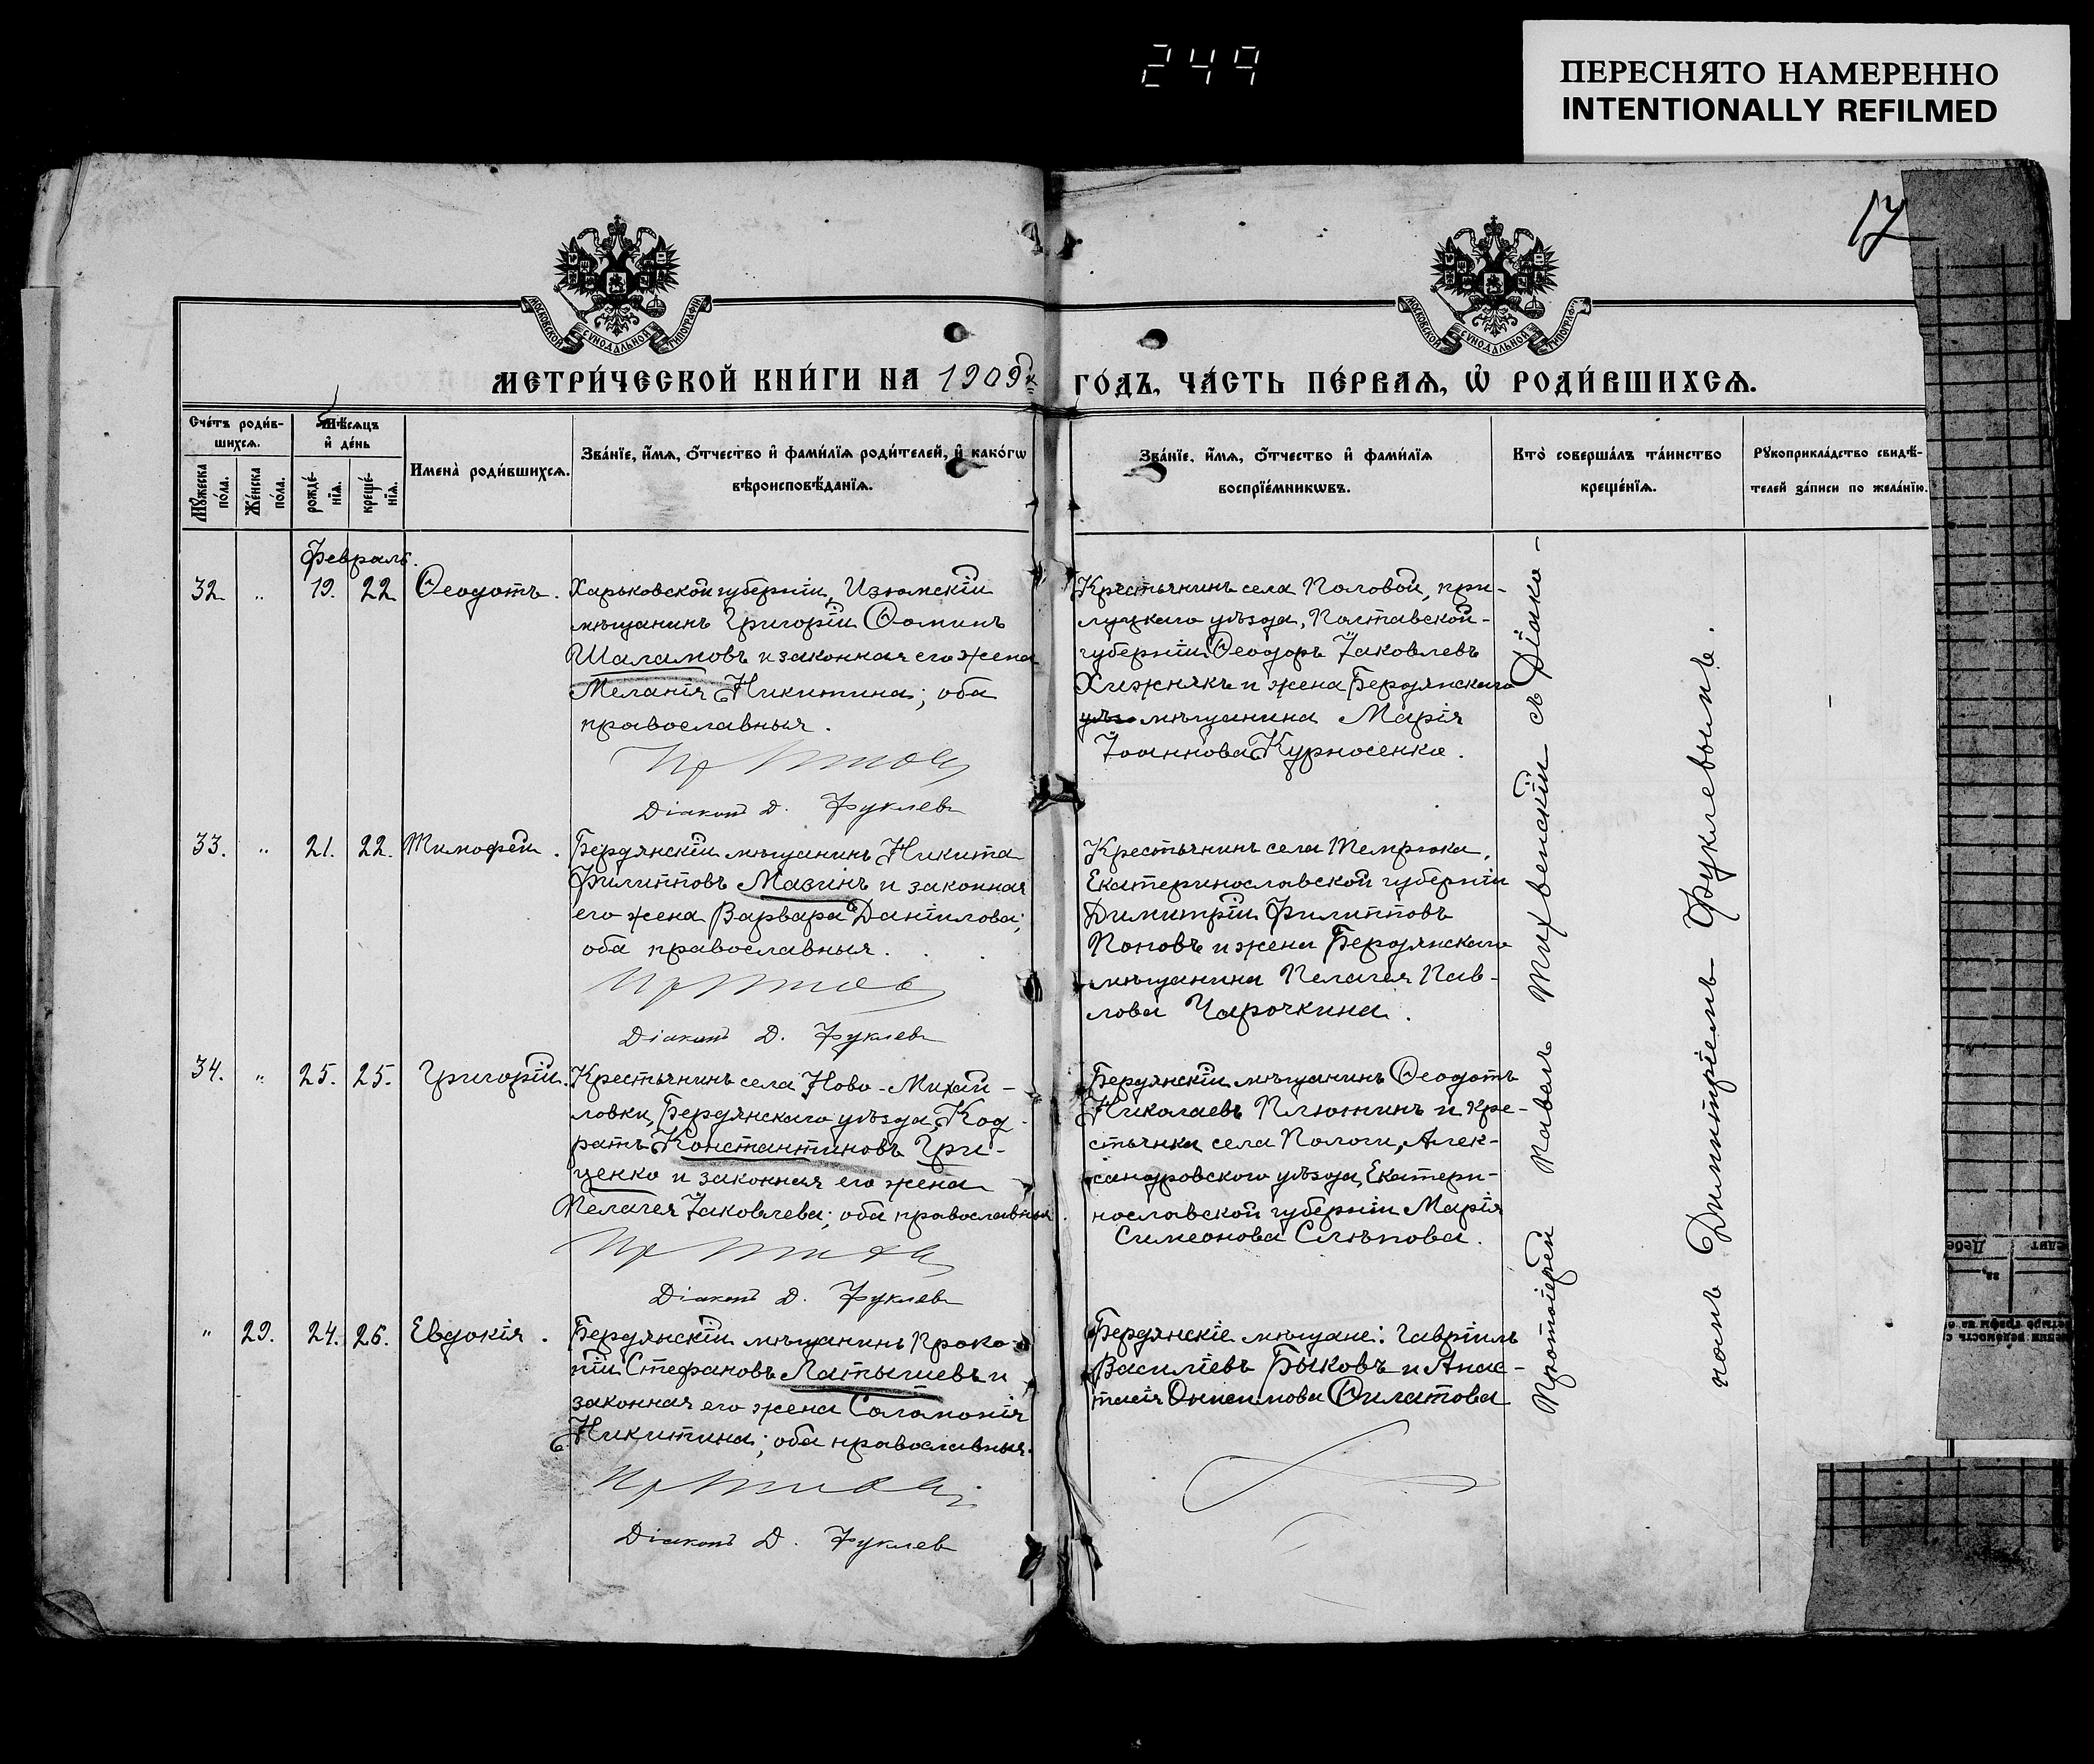 249
ПЕРЕСНЯТО НАМЕРЕННО
INTENTIONALLY REFILMED
17
МОСКОВСКОЙ СѴНОДАЛЬНОЙ ТИПОГРАФІИ
МОСКОВСКОЙ СѴНОДАЛЬНОЙ ТИПОГРАФІИ
МЕТРИ́ЧЕСКОЙ КНИ́ГИ НА 1909й
ГО́ДЪ, ЧА́СТЬ ПЕ́РВАѦ, Ѡ҆ РОДИ́ВШИХСѦ.
Сче́тъ роди́в-
шихсѧ.
Мѹ́жеска по́ла.
Же́нска по́ла.
Мѣ́сѧцъ
и҆ де́нь
рожде́-
нїѧ.
креще́-
нїѧ.
Имена̀ роди́вшихсѧ.
Зва́нїе, и҆́мѧ, ѻ҆́тчество и҆ фами́лїѧ роди́телей, и҆ како́гѡ
вѣроисповѣ́данїѧ.
Зва́нїе, и҆́мѧ, ѻ҆́тчество и҆ фами́лїѧ
воспрїе́мникѡвъ.
Кто̀ соверша́лъ та́инство
креще́нїѧ.
Рѹкоприкла́дство свидѣ́-
телей за́писи по жела́нїю.
Февраль.
32 " 19. 22 Ѳеодотъ.
Харьковской губерніи, Изюмскій
мѣщанинъ Григорій Ѳоминъ
Шаламовъ и законная его жена
Меланія Никитина; оба
православныя.
Діаконъ Д. Фуклевъ
Крестьянинъ села Половой, при-
луцкаго уѣзда, Полтавской
губерніи Ѳеодоръ Іаковлевъ
Хижнякъ и жена Бердянскаго
мѣщанина Марія
Іоаннова Курносенко.
33. " 21. 22. Тимофей.
Бердянскій мѣщанинъ Никита
Филипповъ Мазинъ и законная
его жена Варвара Даніилова;
оба православныя.
Діаконъ Д. Фуклевъ
Крестьянинъ села Темрюка,
Екатеринославской губерніи
Димитрій Филипповъ
Поповъ и жена Бердянскаго
мѣщанина Пелагея Пав-
лова Чарочкина.
34. " 25. 25. Григорій.
Крестьянинъ села Ново-Михай-
ловки, Бердянскаго уѣзда, Код-
ратъ Константиновъ Гри-
ценко и законная его жена
Пелагея Іаковлева; оба православныя.
Діаконъ Д. Фуклевъ
Бердянскій мѣщанинъ Ѳеодотъ
Николаевъ Плютинъ и кре-
стьянка села Пологи, Алек-
сандровскаго уѣзда, Екатери-
нославской губерніи Марія
Симеонова Слѣпова.
" 29. 24. 26. Евдокія.
Бердянскій мѣщанинъ Проко-
пій Стефановъ Латышевъ и
законная его жена Саломонія
Никитина; оба православныя.
Діаконъ Д. Фуклевъ
Бердянскіе мѣщане: Гавріилъ
Василіевъ Быковъ и Анас-
тасія Онисимова Филатова
Протоіерей Павелъ Тихвенскій съ Діако-
номъ Димитріемъ Фуклевымъ.